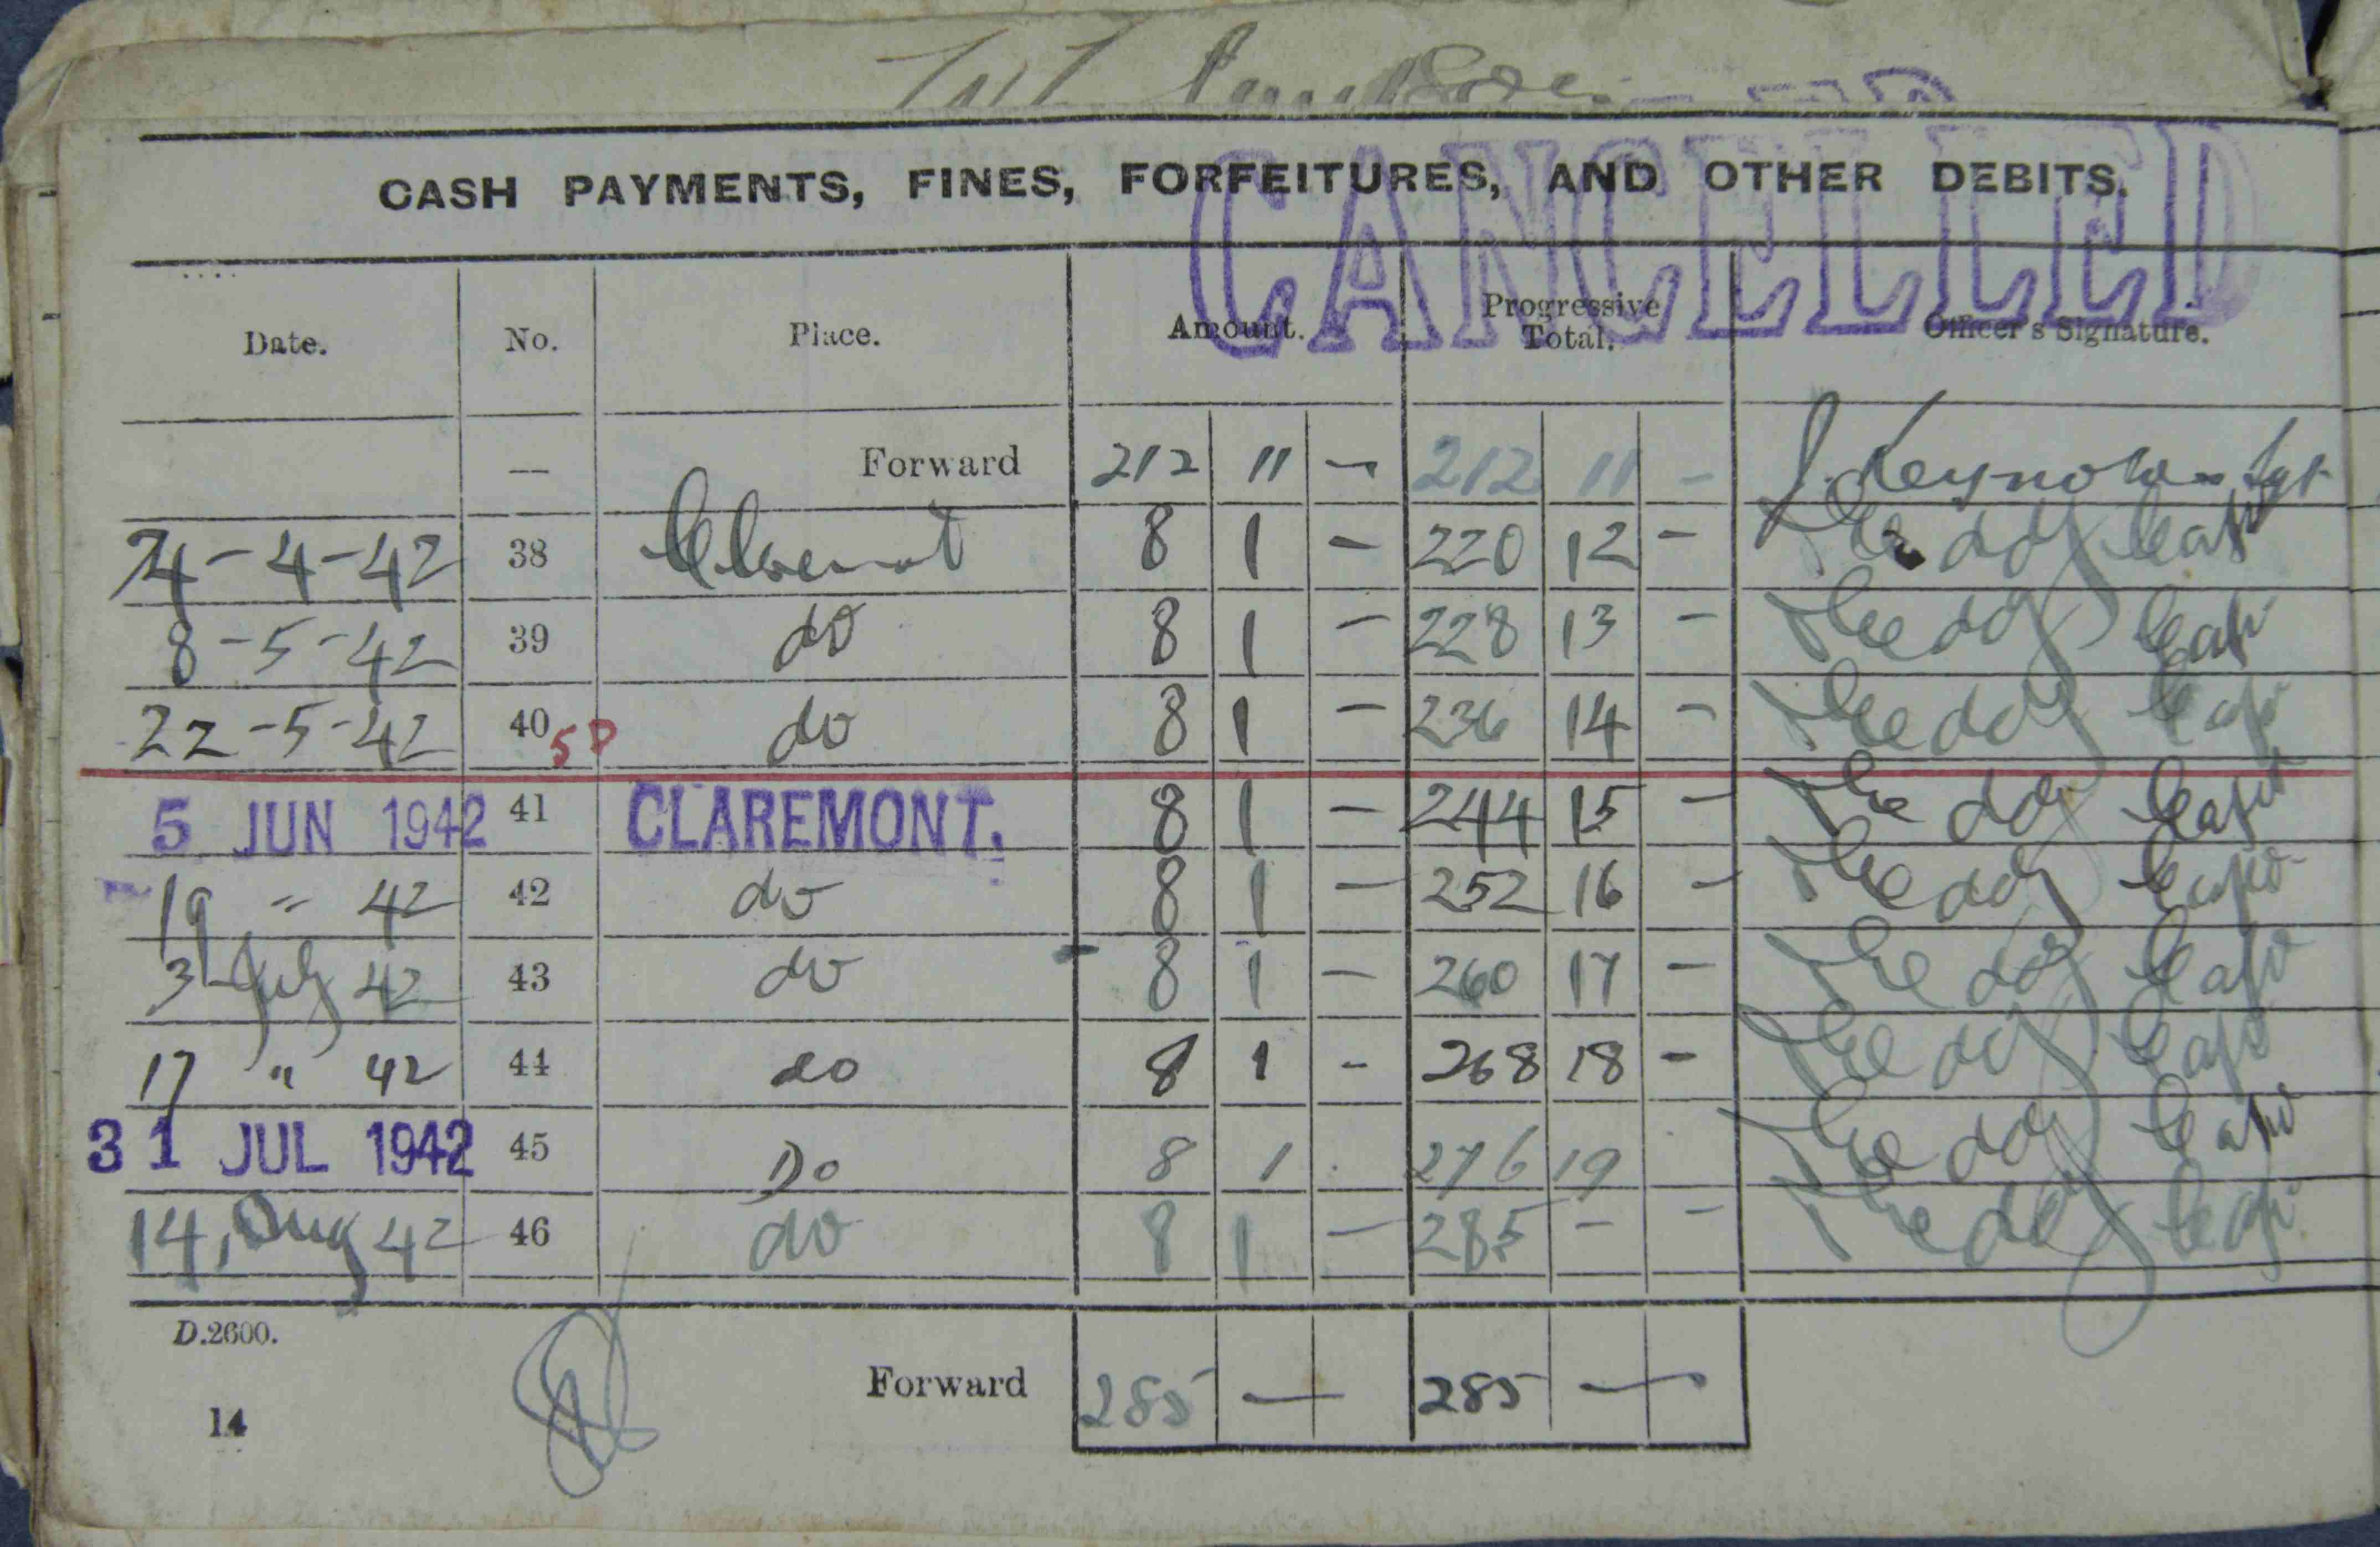 CASH PAYMENTS, FINES, FORFEITURES, AND OTHER DEBITS.
CANCELLED
Date. No. Place. Amount. Progressive Total. Officer's Signature.
— Forward 212 11 — 212 11 — J. Reynolds Sgt
24-4-42 38 Claremont 8 1 — 220 12 — Capt
8-5-42 39 do 8 1 — 228 13 — Capt
22-5-42 40 5D do 8 1 — 236 14 — Capt
5 JUN 1942 41 CLAREMONT. 8 1 — 244 15 — Capt
19 " 42 42 do 8 1 — 252 16 — Capt
3 July 42 43 do 8 1 — 260 17 — Capt
17 " 42 44 do 8 1 - 268 18 - Capt
31 JUL 1942 45 Do 8 1 276 19 Capt
14, Aug 42 46 do 8 1 — 285 - - Capt
D.2600.
Forward 285 — 285 —
14